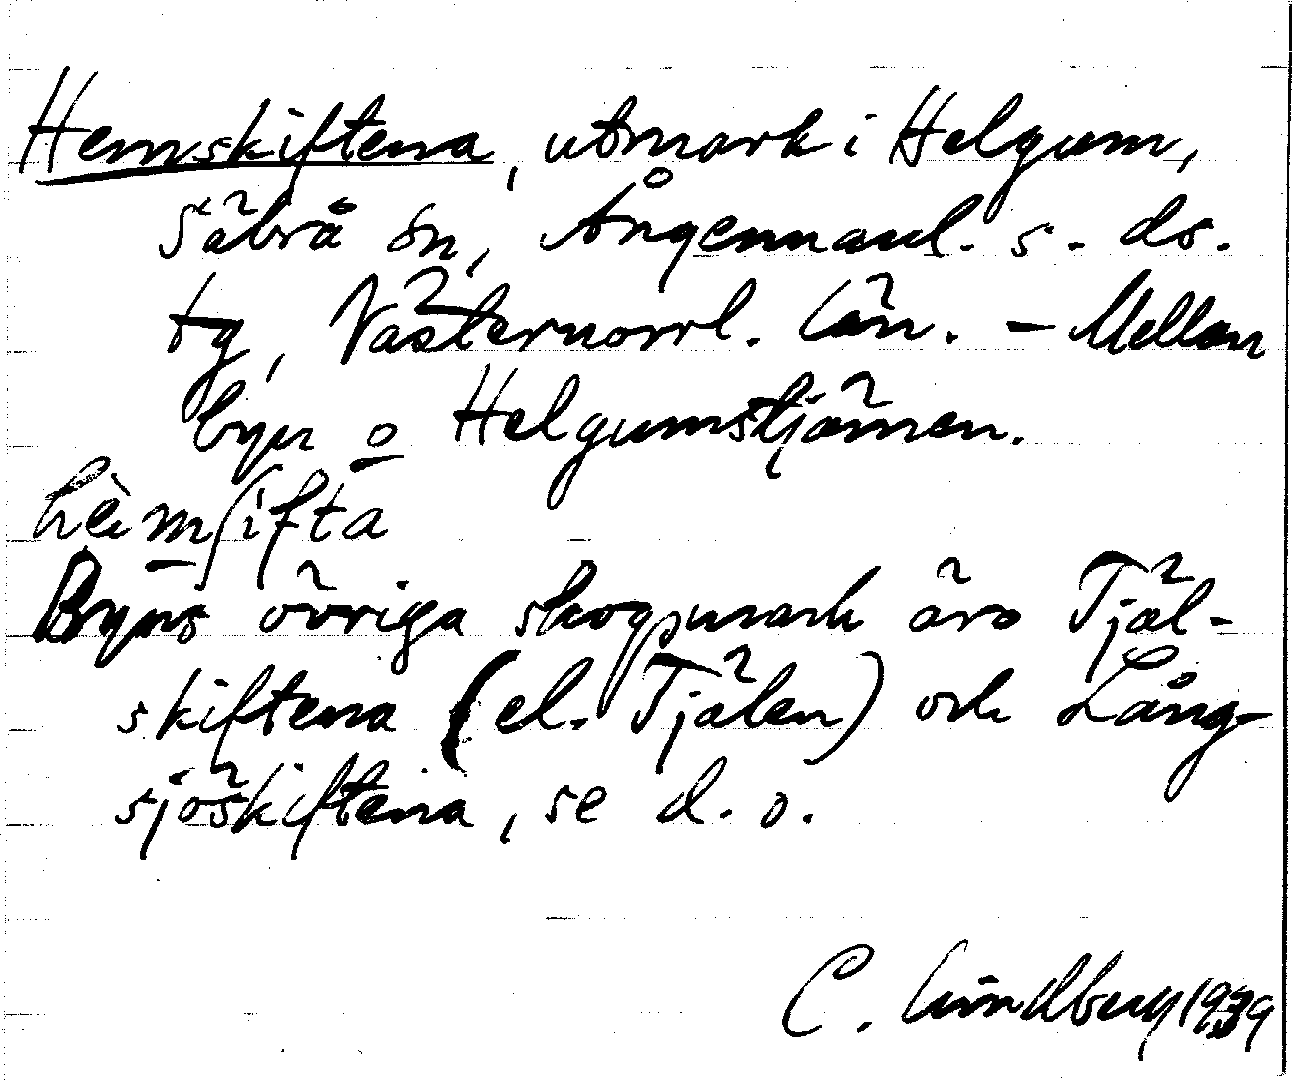 Hemskiftena, utmark i Helgum,
Säbrå sn, Ångermanl. s. ds.
tg, Västernorrl. län. - Mellan
byn o Helgumstjärnen.
Byns övriga skogsmark äro Tjäl-
skiftena (el. Tjälen) och Lång-
sjöskiftena, se d. o.
C. Lindberg 1939